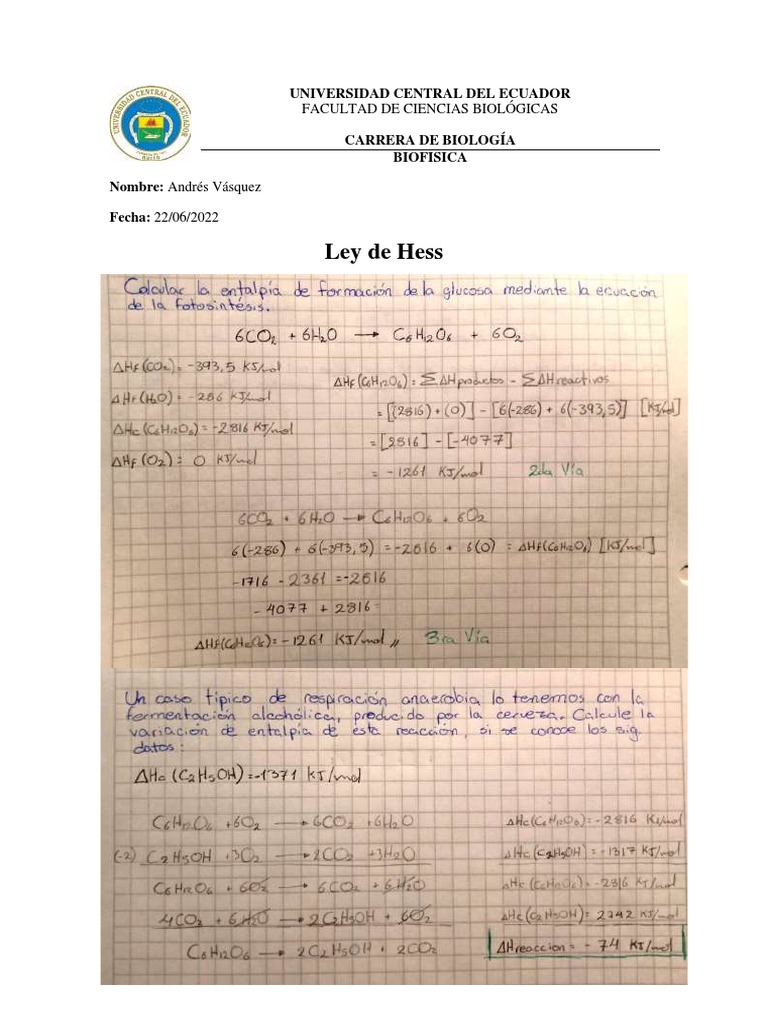 UNIVERSIDAD CENTRAL DEL ECUADOR
FACULTAD DE CIENCIAS BIOLÓGICAS
CARRERA DE BIOLOGÍA
BIOFISICA
Nombre: Andrés Vásquez
Fecha: 22/06/2022
Ley de Hess
Calcular la entalpía de formación de la glucosa mediante la ecuación
de la fotosíntesis.
6CO₂ + 6H₂O → C₆H₁₂O₆ + 6O₂
ΔHf(CO₂) = -393,5 KJ/mol
ΔHf(H₂O) = -286 KJ/mol
ΔHc(C₆H₁₂O₆) = -2816 KJ/mol
ΔHf(O₂) = 0 KJ/mol
ΔHf(C₆H₁₂O₆) = ΣΔHproductos - ΣΔHreactivos
= [(2816) + (0)] - [6(-286) + 6(-393,5)] [KJ/mol]
= [2816] - [-4077]
= -1261 KJ/mol 2da Vía
6CO₂ + 6H₂O → C₆H₁₂O₆ + 6O₂
6(-286) + 6(-393,5) = -2816 + 6(0) = ΔHf(C₆H₁₂O₆) [KJ/mol]
-1716 - 2361 = -2816
-4077 + 2816
ΔHf(C₆H₁₂O₆) = -1261 KJ/mol,, 3ra Vía
Un caso típico de respiración anaerobia lo tenemos con la
fermentación alcohólica, producido por la cerveza. Calcule la
variación de entalpía de esta reacción, si se conoce los sig.
datos:
ΔHc (C₂H₅OH) = -1371 KJ/mol
C₆H₁₂O₆ + 6O₂ → 6CO₂ + 6H₂O ΔHc(C₆H₁₂O₆) = -2816 KJ/mol
(-2) C₂H₅OH + 3O₂ → 2CO₂ + 3H₂O ΔHc(C₂H₅OH) = -1317 KJ/mol
C₆H₁₂O₆ + 6O₂ → 6CO₂ + 6H₂O ΔHc(C₆H₁₂O₆) = -2816 KJ/mol
4CO₂ + 6H₂O → 2C₂H₅OH + 6O₂ ΔHc(C₂H₅OH) = 2742 KJ/mol
C₆H₁₂O₆ → 2C₂H₅OH + 2CO₂ ΔHreaccion = - 74 KJ/mol